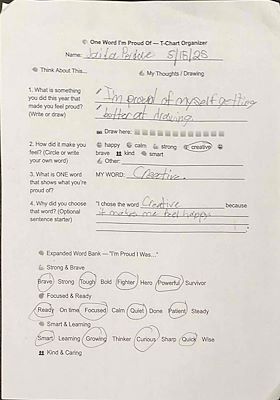 One Word I'm Proud Of — T-Chart Organizer
Name: 5/15/25
Think About This... My Thoughts / Drawing
1. What is something you did this year that made you feel proud? (Write or draw)
I'm proud of myself getting
better at drawing.
Draw here:
2. How did it make you feel? (Circle or write your own word)
happy calm strong creative
brave kind smart
Other:
3. What is ONE word that shows what you're proud of?
MY WORD: Creative.
4. Why did you choose that word? (Optional sentence starter)
"I chose the word Creative because
it makes me feel happy
Expanded Word Bank — "I'm Proud I Was..."
Strong & Brave
Brave Strong Tough Bold Fighter Hero Powerful Survivor
Focused & Ready
Ready On time Focused Calm Quiet Done Patient Steady
Smart & Learning
Smart Learning Growing Thinker Curious Sharp Quick Wise
Kind & Caring